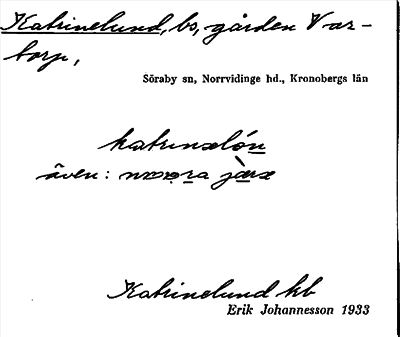 Katrinelund, bs, gården Var-
torp,
Söraby sn, Norrvidinge hd., Kronobergs län
katrinelón
även:
Katrinelund kb
Erik Johannesson 1933